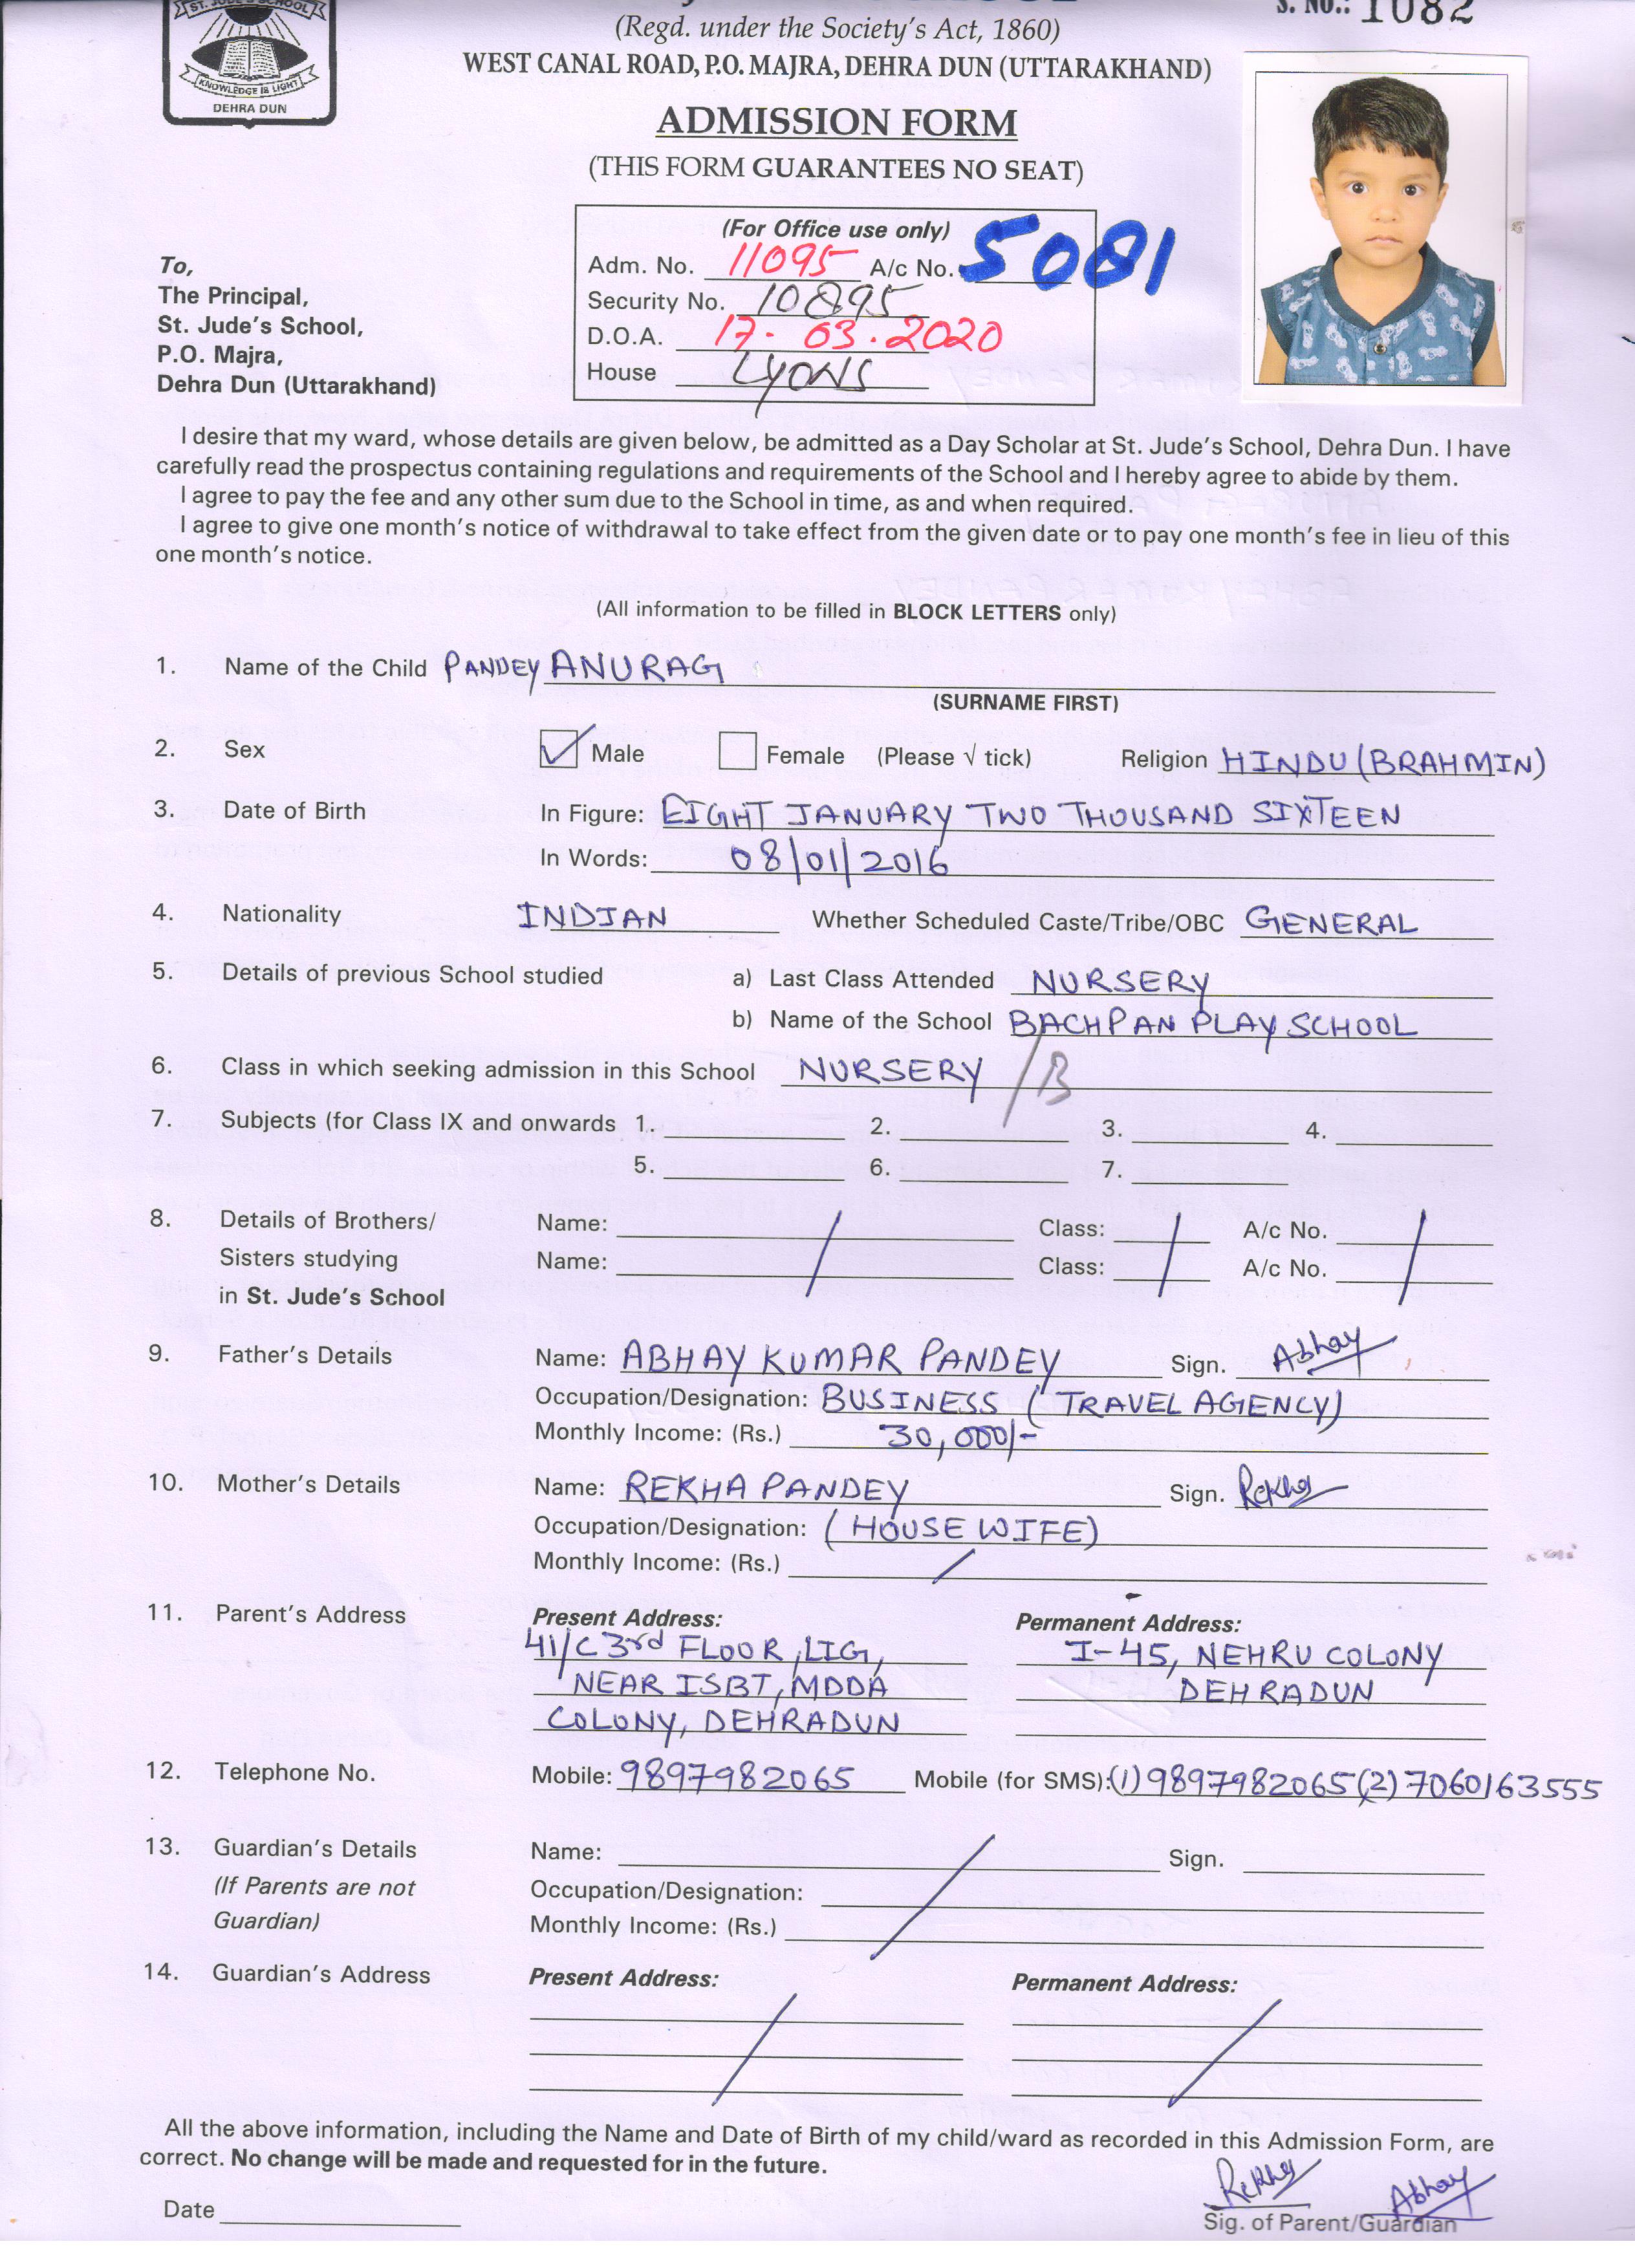 ST. JUDE'S SCHOOL
KNOWLEDGE IS LIGHT
DEHRA DUN
S. No.: 1082
(Regd. under the Society's Act, 1860)
WEST CANAL ROAD, P.O. MAJRA, DEHRA DUN (UTTARAKHAND)
ADMISSION FORM
(THIS FORM GUARANTEES NO SEAT)
(For Office use only)
Adm. No. 11095 A/c No. 5081
Security No. 10895
D.O.A. 17.03.2020
House LYONS
To,
The Principal,
St. Jude's School,
P.O. Majra,
Dehra Dun (Uttarakhand)
I desire that my ward, whose details are given below, be admitted as a Day Scholar at St. Jude's School, Dehra Dun. I have
carefully read the prospectus containing regulations and requirements of the School and I hereby agree to abide by them.
I agree to pay the fee and any other sum due to the School in time, as and when required.
I agree to give one month's notice of withdrawal to take effect from the given date or to pay one month's fee in lieu of this
one month's notice.
(All information to be filled in BLOCK LETTERS only)
1. Name of the Child PANDEY ANURAG
(SURNAME FIRST)
2. Sex Male Female (Please √ tick) Religion HINDU (BRAHMIN)
3. Date of Birth In Figure: EIGHT JANUARY TWO THOUSAND SIXTEEN
In Words: 08/01/2016
4. Nationality INDIAN Whether Scheduled Caste/Tribe/OBC GENERAL
5. Details of previous School studied a) Last Class Attended NURSERY
b) Name of the School BACHPAN PLAY SCHOOL
6. Class in which seeking admission in this School NURSERY /B
7. Subjects (for Class IX and onwards 1. 2. 3. 4.
5. 6. 7.
8. Details of Brothers/ Name: Class: A/c No.
Sisters studying Name: Class: A/c No.
in St. Jude's School
9. Father's Details Name: ABHAY KUMAR PANDEY Sign. Abhay
Occupation/Designation: BUSINESS (TRAVEL AGENCY)
Monthly Income: (Rs.) 30,000/-
10. Mother's Details Name: REKHA PANDEY Sign. Rekha
Occupation/Designation: (HOUSE WIFE)
Monthly Income: (Rs.)
11. Parent's Address Present Address: Permanent Address:
41/C 3rd FLOOR, LIG, I-45, NEHRU COLONY
NEAR ISBT, MDDA DEHRADUN
COLONY, DEHRADUN
12. Telephone No. Mobile: 9897982065 Mobile (for SMS): (1) 9897982065 (2) 7060163555
13. Guardian's Details Name: Sign.
(If Parents are not Occupation/Designation:
Guardian) Monthly Income: (Rs.)
14. Guardian's Address Present Address: Permanent Address:
All the above information, including the Name and Date of Birth of my child/ward as recorded in this Admission Form, are
correct. No change will be made and requested for in the future.
Rekha Abhay
Date Sig. of Parent/Guardian